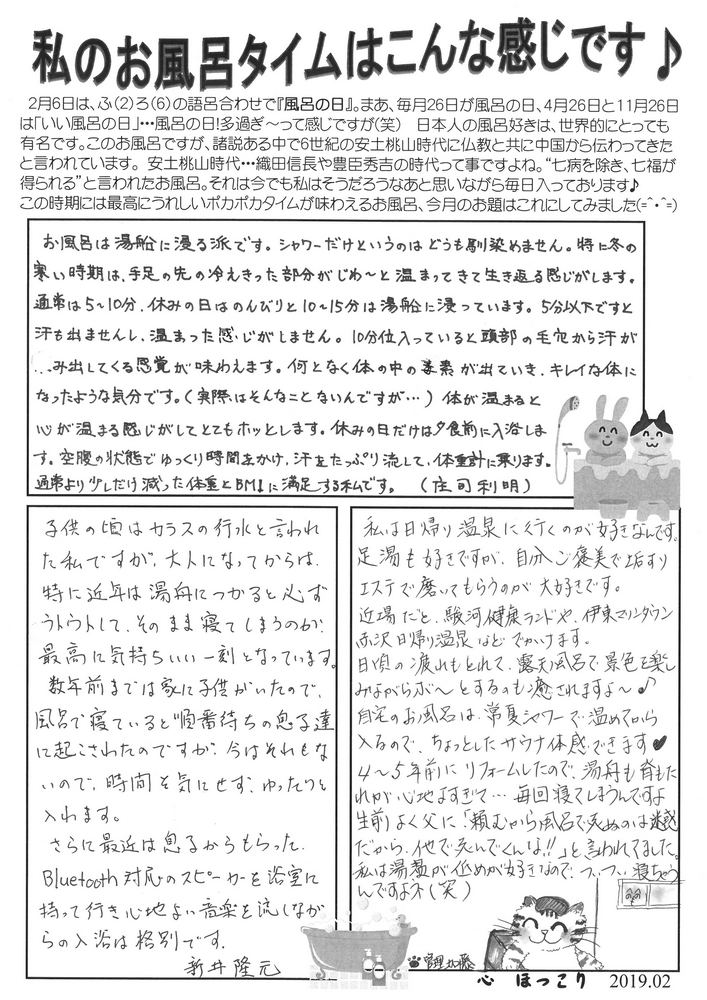 私のお風呂タイムはこんな感じです♪
2月6日は、ふ(2)ろ(6)の語呂合わせで『風呂の日』。まあ、毎月26日が風呂の日、4月26日と11月26日
は「いい風呂の日」…風呂の日！多過ぎ～って感じですが(笑)　日本人の風呂好きは、世界的にとっても
有名です。このお風呂ですが、諸説ある中で6世紀の安土桃山時代に仏教と共に中国から伝わってきた
と言われています。 安土桃山時代…織田信長や豊臣秀吉の時代って事ですよね。“七病を除き、七福が
得られる”と言われたお風呂。それは今でも私はそうだろうなあと思いながら毎日入っております♪
この時期には最高にうれしいポカポカタイムが味わえるお風呂、今月のお題はこれにしてみました(=^・^=)
お風呂は湯船に浸る派です。シャワーだけというのはどうも馴染めません。特に冬の
寒い時期は、手足の先の冷えきった部分がじわ～と温まってきて生き返る感じがします。
通常は5～10分、休みの日はのんびりと10～15分は湯船に浸っています。5分以下ですと
汗も出ませんし、温まった感じがしません。10分位入っていると頭部の毛穴から汗が
…み出してくる感覚が味わえます。何となく体の中の毒素が出ていき、キレイな体に
なったような気分です。(実際はそんなことないんですが…)体が温まると
心が温まる感じがしてとてもホッとします。休みの日だけは夕食前に入浴しま
す。空腹の状態でゆっくり時間をかけ、汗をたっぷり流して、体重計に乗ります。
通常より少しだけ減った体重とBMIに満足する私です。　(庄司利明)
子供の頃はカラスの行水と言われ
た私ですが、大人になってからは、
特に近年は湯舟につかると必ず
ウトウトして、そのまま寝てしまうのが、
最高に気持ちいい一刻となっています。
数年前までは家に子供がいたので、
風呂で寝ていると順番待ちの息子達
に起こされたのですが、今はそれもな
いので、時間を気にせず、ゆったりと
入れます。
さらに最近は息子からもらった、
Bluetooth対応のスピーカーを浴室に
持って行き心地よい音楽を流しなが
らの入浴は格別です。
新井隆元
私は日帰り温泉に行くのが好きなんです。
足湯も好きですが、自分ご褒美で垢すり
エステで磨いてもらうのが大好きです。
近場だと、駿河健康ランドや、伊東マリンタウン
赤沢日帰り温泉などでかけます。
日頃の疲れもとれて、露天風呂で景色を楽し
みながらボ～とするのも癒されますよ～♪
自宅のお風呂は、常夏シャワーで温めてから
入るので、ちょっとしたサウナ体感できます♥
4～5年前にリフォームしたので、湯舟も背もた
れがが心地よすぎて…毎回寝てしまうんですよ
生前よく父に「頼むから風呂で死ぬのは迷惑
だから、他で死んでくんな!!」と言われてました。
私は湯温が低めが好きなので、つい、つい寝ちゃう
んですよネ(笑)
心 ほっこり 2019.02